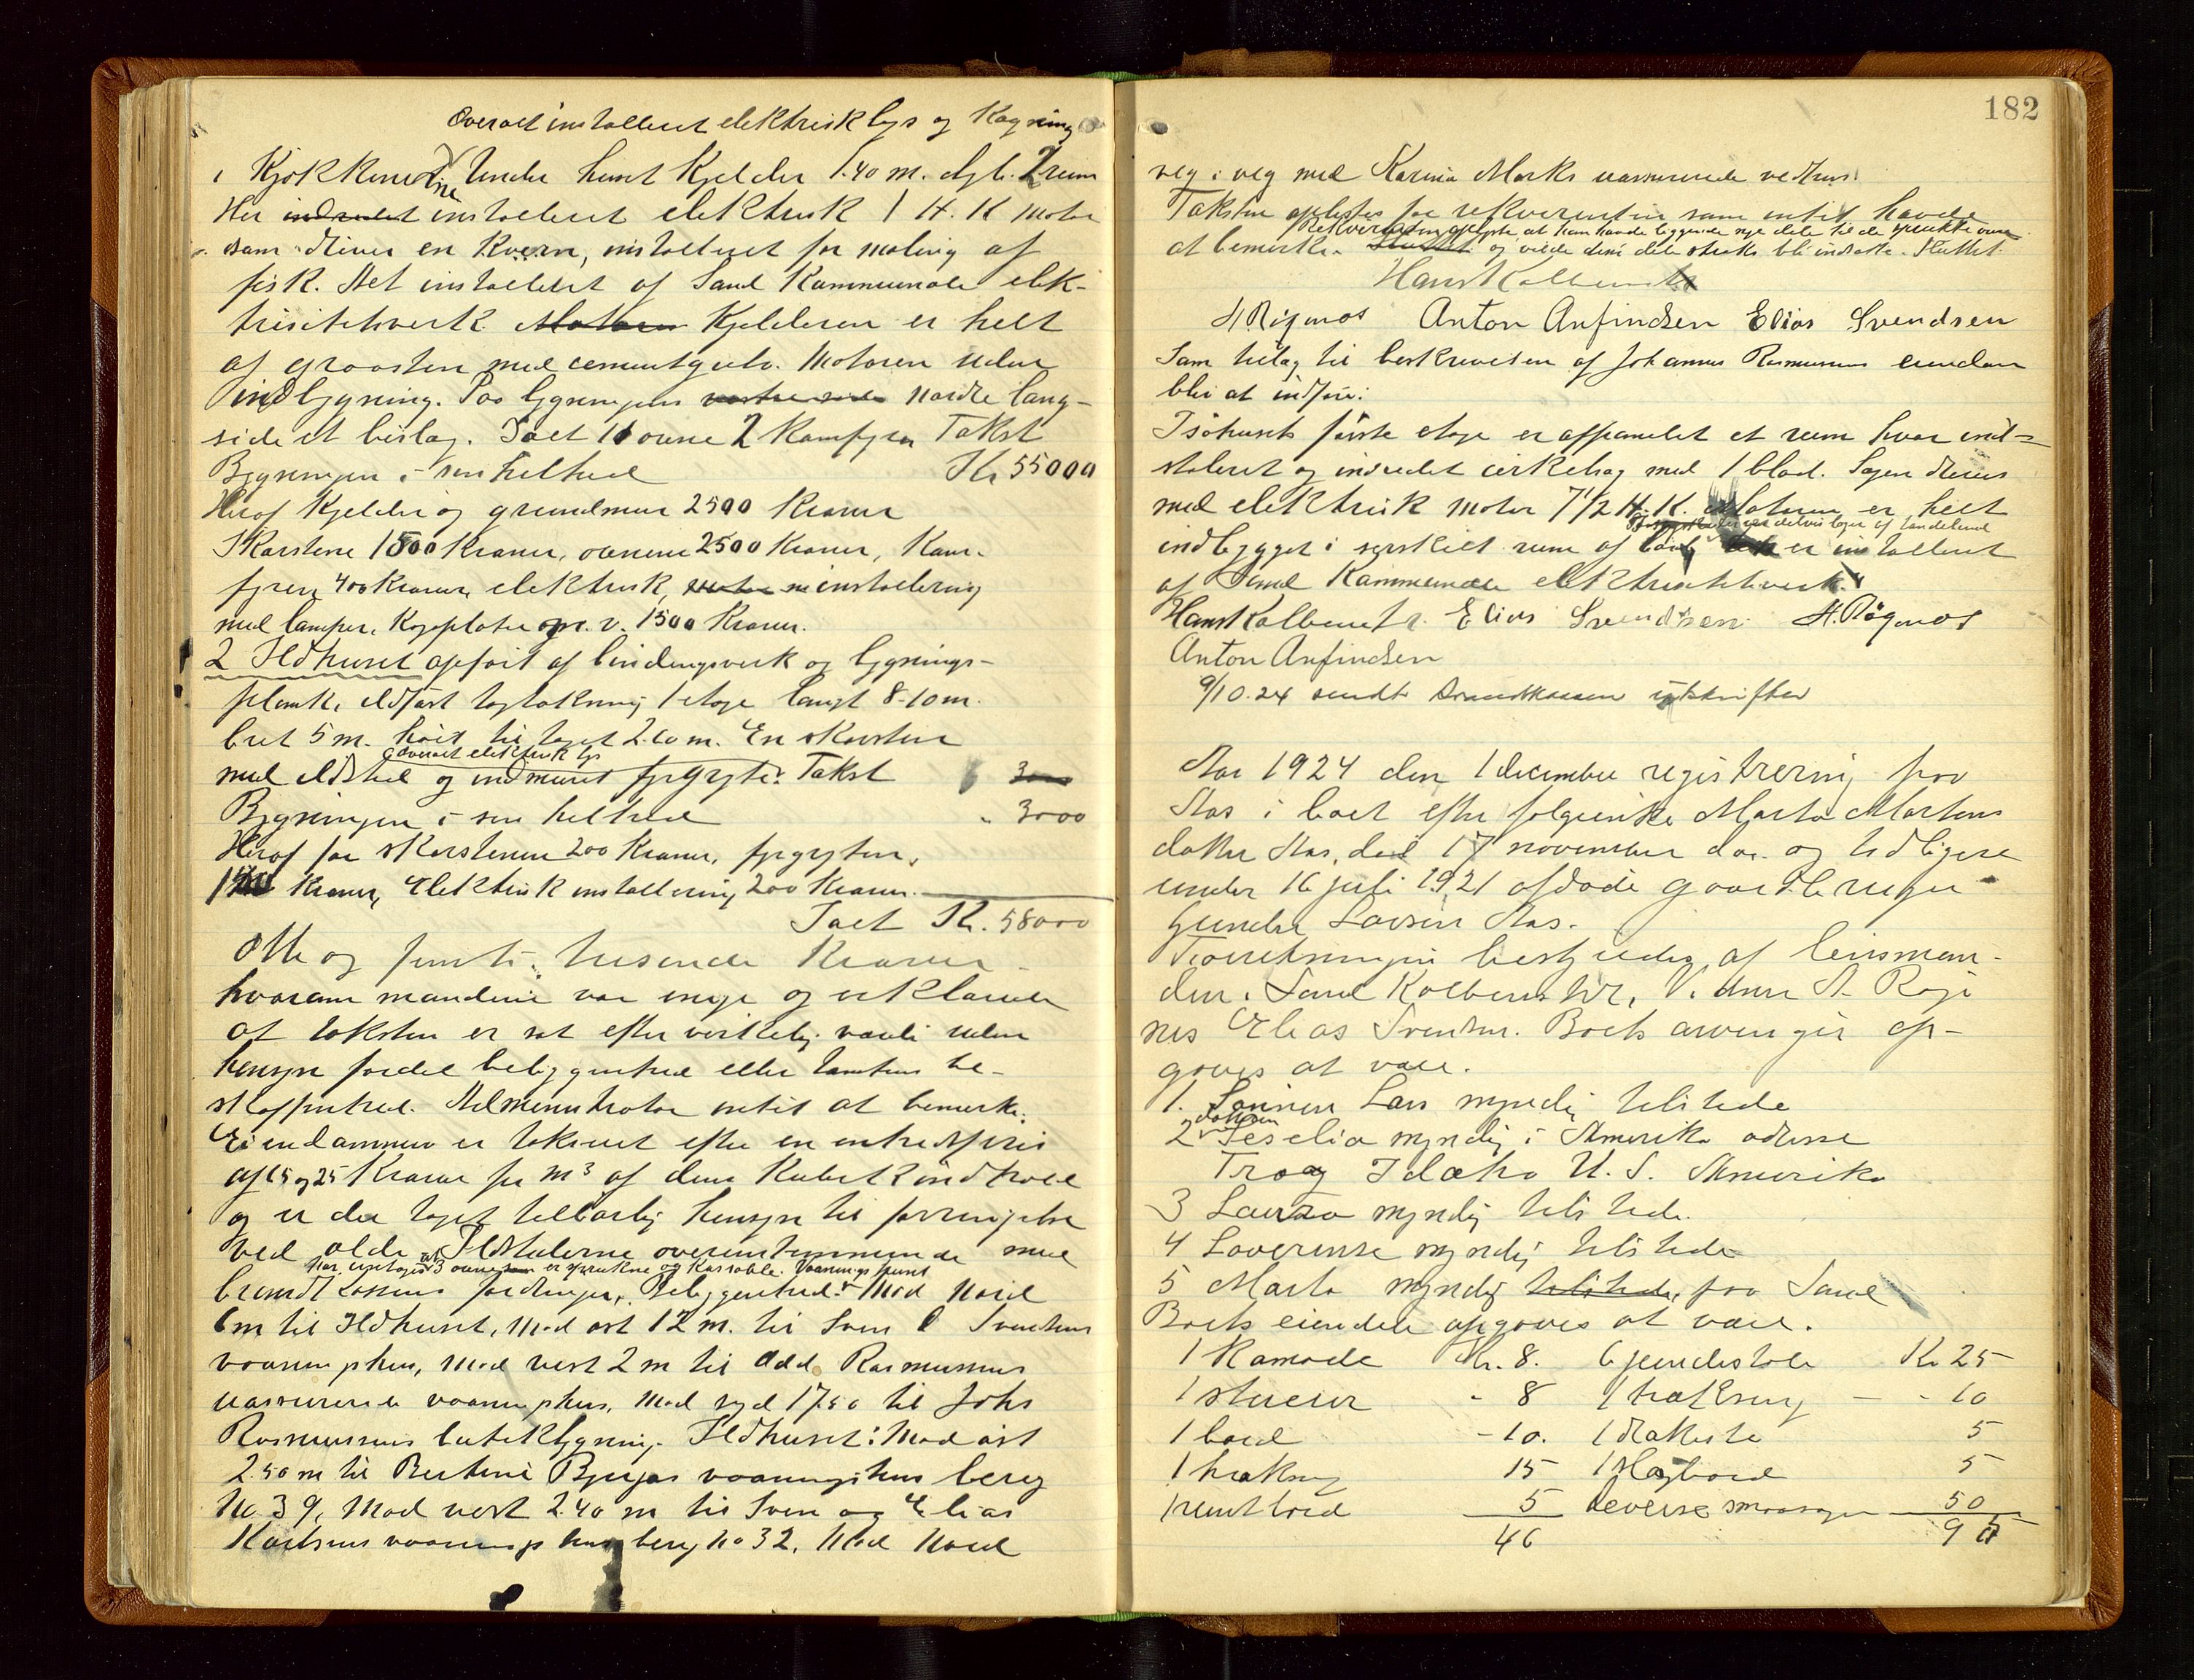 Overalt installeret elektrisk lys og Kogning
i Kjøkkenet. Under huset Kjelder 1.40 m. dyb. 2 rum
Her indredet installeret elektrisk 1 H. K motor
som driver en Kværn, installeret for maling af
fisk. Alt installeret af Sand Kommunale elek-
trisitetsverk. Motoren Kjelderen er helt
af graasten med cementgulv. Motoren uden
indbygning. Paa bygningens vestre side nordre lang-
side et bislag. Ialt 11 ovne 2 Komfyrer Takst
Bygningen i sin helhed Kr 55000
Heraf Kjelder og grundmur 2500 Kroner
Skorstene 1500 Kroner, ovnene 2500 Kroner, Kom-
fyren 400 Kroner, elektrisk installering
med lamper, Kogeplater m. v. 1500 Kroner.
2 Ildhuset opført af bindingsverk og bygnings-
plank, ildfast tagtækning 1 etage langt 8-10 m.
bret 5 m. høit til taget 2.60 m. En skorsten
overalt elektrisk lys
med ildsted og indmuret fyrgryte. Takst 3000
Bygningen i sin helhed " 3000
Heraf for skorstenen 200 Kroner, fyrgryten
Kroner, Elektrisk installering 200 Kroner.
Ialt Kr. 58000
Otte og femti tusende Kroner
hvorom mændene var enige og erklærede
at taksten er sat efter virkelig værdi uden
hensyn til beliggenhed eller tomtens be-
skaffenhed. Administrator intet at bemerke.
Eiendommen er takseret efter en enhedspris
af 15 og 25 Kroner pr m³ af dens Kubikindhold
og er der taget tilbørlig hensyn til forringelse
ved ælde. Ildstederne overenstemmende med
har undtagen 3 ovne som er sprukne og kassable. Vaaningshuset
brandkassens fordringer. Beliggenhed: Mod Nord
6 m til Ildhuset, Mod øst 12 m. til Sven Svendsens
vaaningshus, Mod vest 2 m til Odd. Rasmussens
uassurerede vaaningshus, Mod syd 17.50 til Johs
Rasmussens butikbygning. Ildhuset: Mod øst
2.50 m til Bertine Bjergas vaaningshus bereg
No 39, Mod vest 2.40 m til Sven og Elias
vaaningshus bereg No 32, Mod Nord
182
veg i veg med Karina Marks uassurerede vedhus.
Taksten oplestes for rekvirenten som intet havde
Rekvirenten oplyste at han havde liggende nye dele til de sprukne ovne
at bemerke. Sluttet og vilde disse dele straks bli indsatte. Sluttet.
Hans Kolbenstv
H Røgnos Anton Anfindsen Elias Svendsen
Som tillæg til beskrivelsen af Johannes Rasmussens eiendom
blir at indføre:
I søhusets første etage er afpanelet et rum hvor ind-
staleret og indredet cirkelsag med 1 blad. Sagen drives
med elektrisk motor 7 1/2 H. K. Motoren er helt
indbygget i særskilt rum af bord er installeret
af Sand Kommunale elektrisitetsverk.
Hans Kolbenstv. Elias Svendsen H. Røgnos
Anton Anfindsen
9/10.24 sendt Brandkassen utskrifter
Aar 1924 den 1 december registrering paa
Aas i boet efter folgeenke Marta Martens
datter Aas, død 17 november d. a. og tidligere
under 16 juli 1921 afdøde gaardbruger
Gunder Larsen Aas.
Forretningen bestyredes af lensman-
den i Sand Kolbenstvt. Vidner H. Røg
nes Elias Svendsen. Boets arvinger op-
goves at være.
1. Sønnen Lars myndig tilstede
datteren
2 Teselia myndig i Amerika adresse
Troy Idaho U. S. Amerika
3 Laura myndig tilstede.
4 Loverense myndig tilstede
5 Marta myndig tilstede, paa Sand
Boets eiendele opgoves at være.
1 Komode Kr. 8. 6 pindestole Kr 25
1 stueur " 8 1 trækseng - " 10
1 bord - 10. 1 dk kiste 5
1 trækseng 15 1 slagbord 5
1 rundtbord 5 deverse smaasager 50
46 95